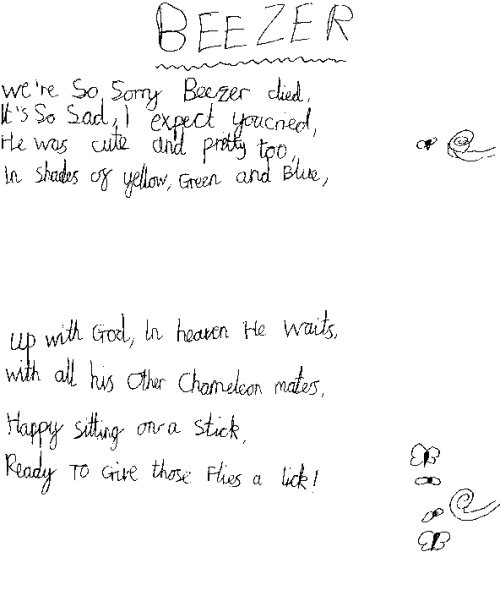 BEEZER
We're So Sorry Beezer died,
It's So Sad, I expect you cried,
He was cute and pretty too,
In Shades of yellow, Green and Blue,
Up with God, In heaven He waits,
with all his Other Chameleon mates,
Happy Sitting on a Stick,
Ready To Give those Flies a lick!